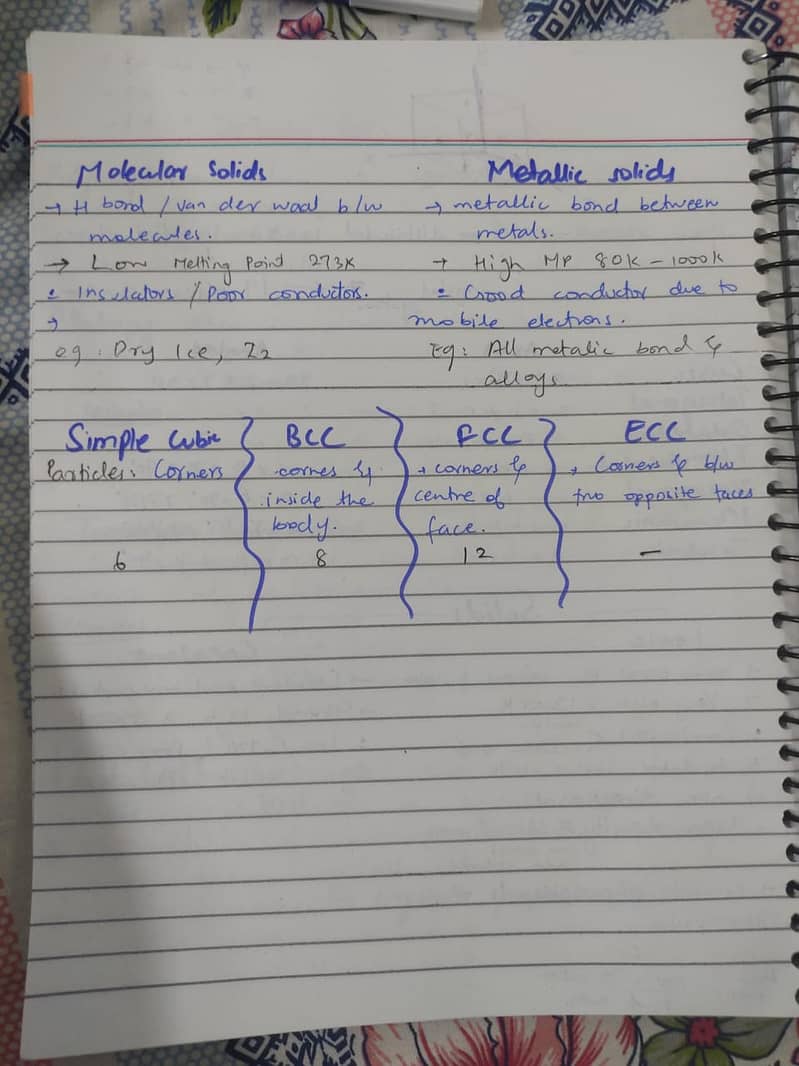 Molecular Solids
→ H bond / van der waal b/w
molecules.
→ Low Melting Point 273K
= Insulators / Poor conductors.
→
eg: Dry Ice, I2
Metallic solids
→ metallic bond between
metals.
→ High MP 80K - 1000K
= Good conductor due to
mobile electrons.
Eg: All metalic bond &
alloys.
Simple Cubic
Particles: Corners
6
BCC
cornes &
inside the
body.
8
FCC
→ corners &
centre of
face.
12
ECC
→ Corners & b/w
two opposite faces
—